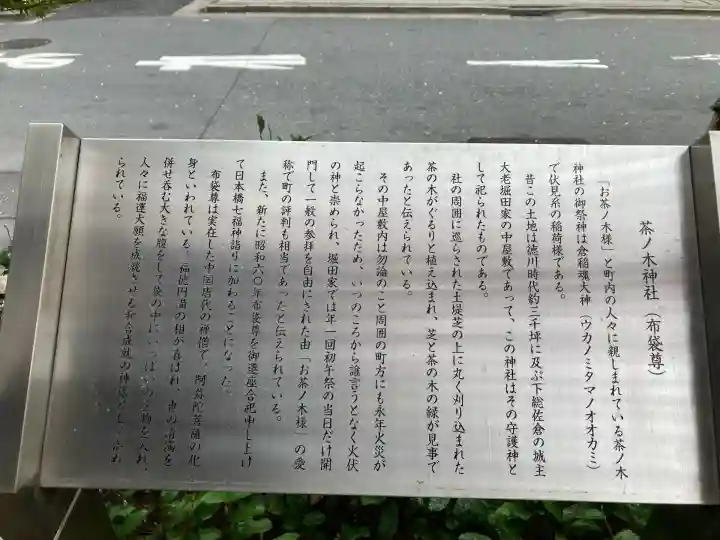 茶ノ木神社(布袋尊)
「お茶ノ木様」と町内の人々に親しまれている茶ノ木
神社の御祭神は倉稲魂大神(ウカノミタマノオオカミ)
で伏見系の稲荷様である。
昔この土地は徳川時代約三千坪に及ぶ下総佐倉の城主
大老堀田家の中屋敷であって、この神社はその守護神と
して祀られたものである。
社の周囲に巡らされた土堤芝の上に丸く刈り込まれた
茶の木がぐるりと植え込まれ、芝と茶の木の緑が見事で
あったと伝えられている。
その中屋敷内は勿論のこと周囲の町方にも永年火災が
起こらなかったため、いつのころから誰言うとなく火伏
の神と崇められ、堀田家では年一回初午祭の当日だけ開
門して一般の参拝を自由にされた由「お茶ノ木様」の愛
称で町の評判も相当であったと伝えられている。
また、新たに昭和六〇年布袋尊を御遷座合祀申し上げ
て日本橋七福神詣りに加わることになった。
布袋尊は実在した中国唐代の禅僧で、阿弥陀菩薩の化
身といわれている。福徳円満の相が喜ばれ、世の清濁を
併せ呑む大きな腹をして袋の中にいっぱいの宝物を入れ、
人々に福運大願を成就させる和合成就の神様として崇め
られている。